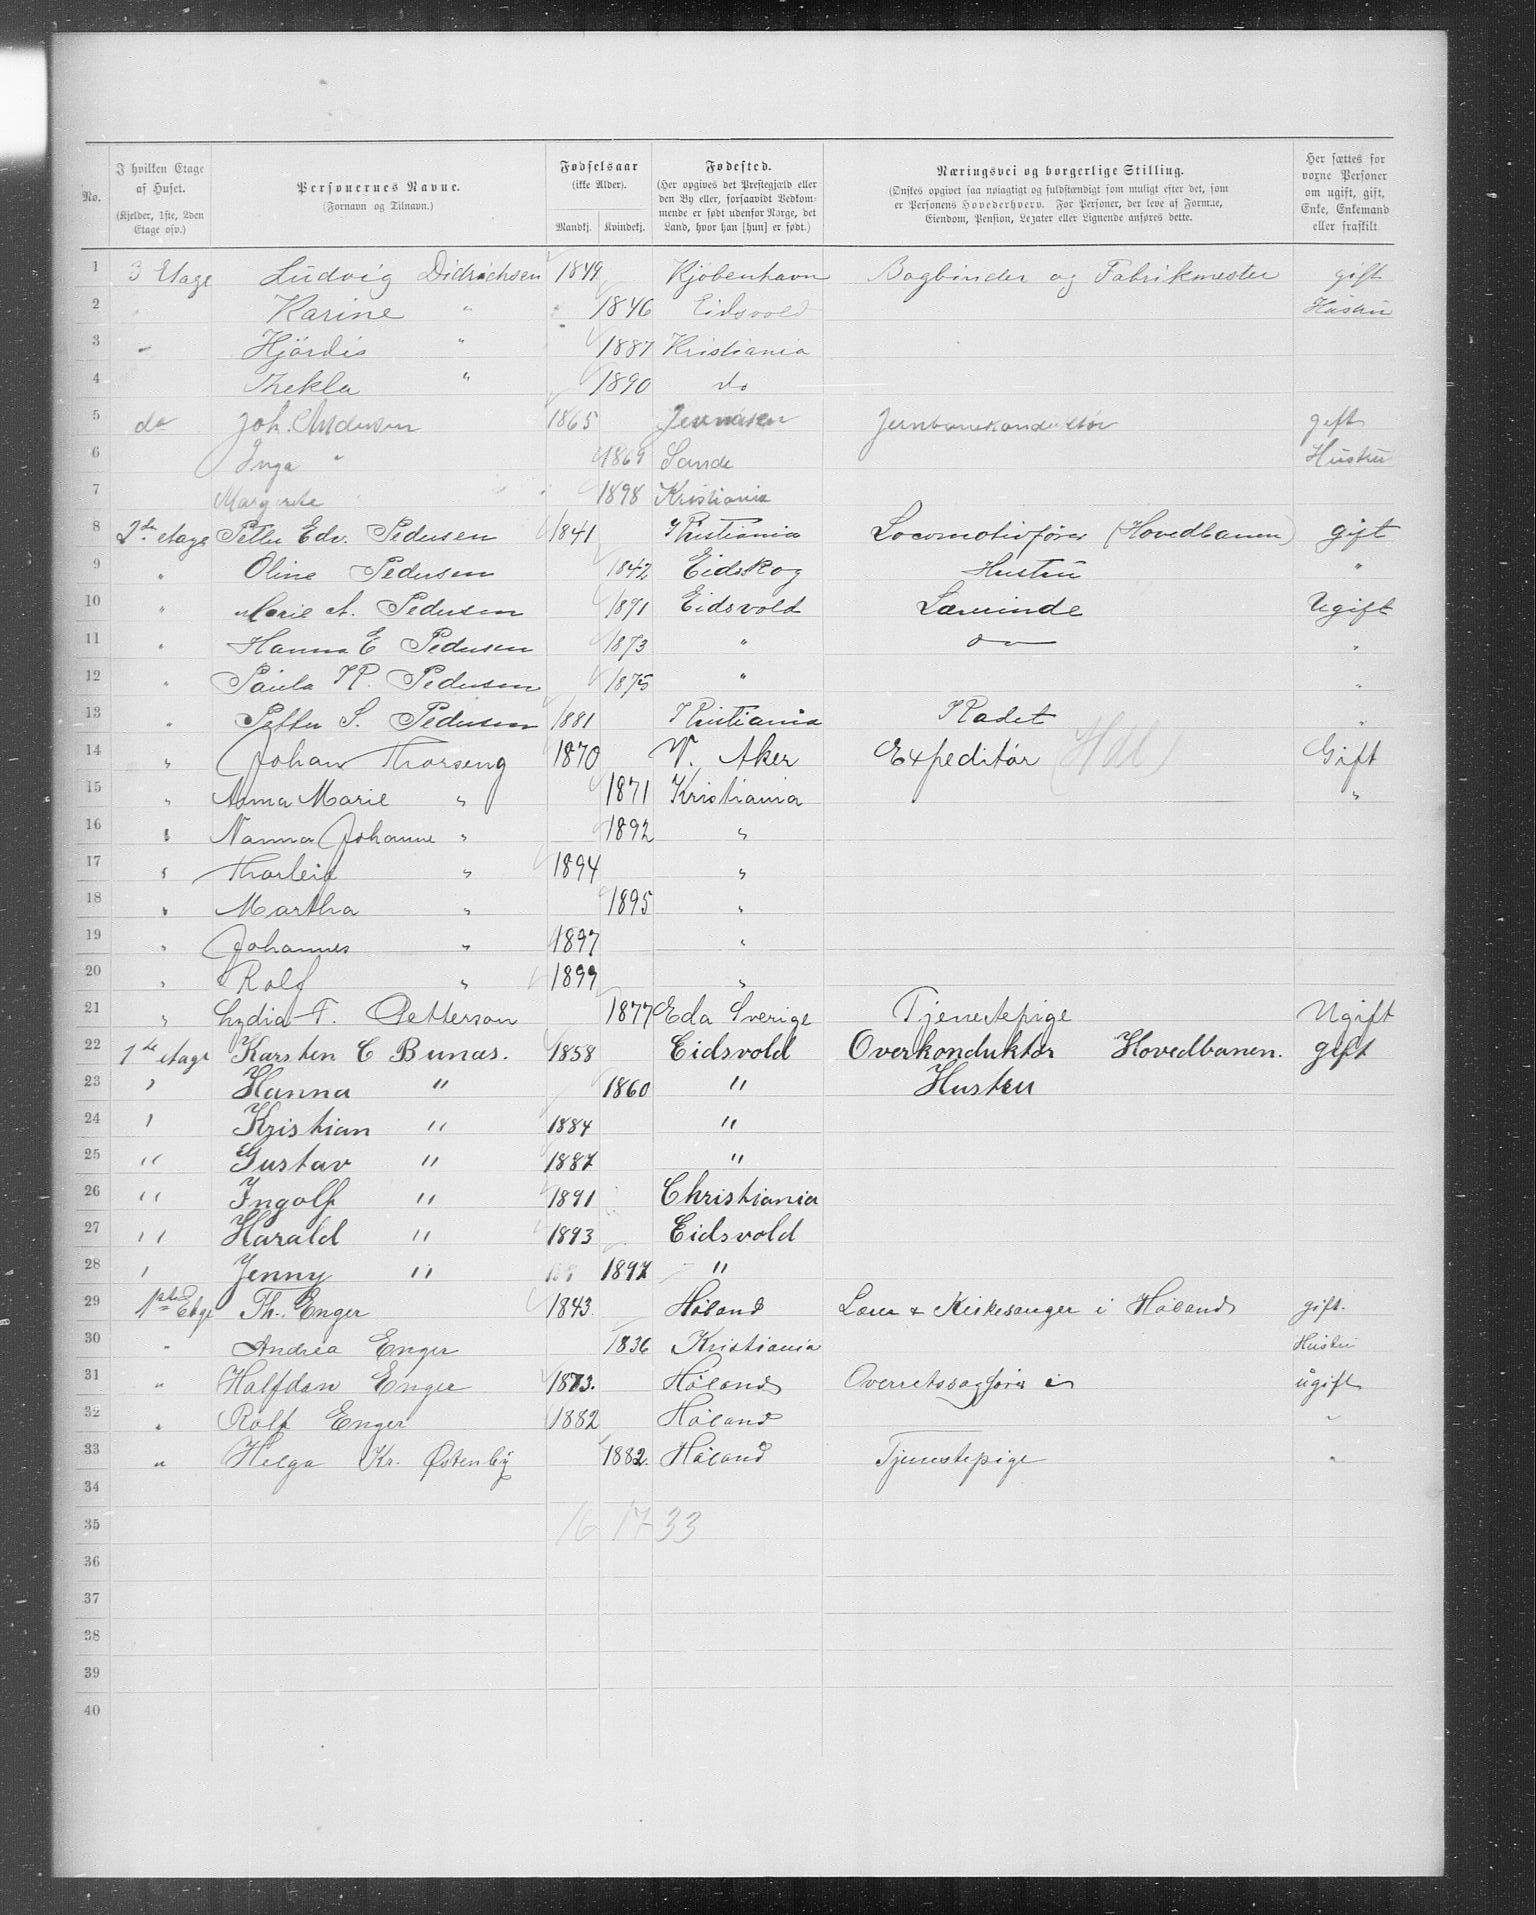 No. | I hvilken Etage af Huset. (Kjelder, 1ste, 2den Etage osv.) | Personernes Navne. (Fornavn og Tilnavn.) | Fødselsaar (ikke Alder). Mandkj. Kvindekj. | Fødested. (Her opgives det Prestegjæld eller den By eller, forsaavidt Vedkommende er født udenfor Norge, det Land, hvor han [hun] er født.) | Næringsvei og borgerlige Stilling. (Ønskes opgivet saa nøiagtigt og fuldstændigt som muligt efter det, som er Personens Hovederhverv. For Personer, der leve af Formue, Eiendom, Pension, Legater eller Lignende anføres dette. | Her sættes for voxne Personer om ugift, gift, Enke, Enkemand eller fraskilt
1 3 Etage Ludvig Didrichsen 1849 Kjøbenhavn Bogbinder og Fabrikmester gift
2 Karine " 1846 Eidsvold Hustru
3 " Hjørdis " 1887 Kristiania
4 Thekla " 1890 do
5 do Joh. Andersen 1865 Jernbanekonduktør gift
6 Inga " 1869 Sande Hustru
7 Margrete 1898 Kristiania
8 2de etage Petter Edv. Pedersen 1841 Kristiania Locomotivfører (Hovedbanen) gift
9 " Oline Pedersen 1842 Eidskog Hustru "
10 " Marie A. Pedersen 1871 Eidsvold Lærerinde Ugift
11 " Hanna E Pedersen 1873 " do "
12 " Paula K. Pedersen 1875 " "
13 " Petter S. Pedersen 1881 Kristiania Kadet "
14 " Johan Thorseng 1870 V. Aker Expeditør (Hdl) Gift
15 " Anna Marie " 1871 Kristiania "
16 " Nanna Johanne " 1892 "
17 " Thorleif " 1894 "
18 " Martha " 1895 "
19 " Johannes " 1897 "
20 " Rolf " 1899 "
21 " Lydia F. Petterson 1877 Eda Sverige Tjenestepige Ugift
22 1ste etage Karsten C Bunæs. 1858 Eidsvold Overkonduktør Hovedbanen. gift
23 " Hanna " 1860 " Hustru
24 " Kristian " 1884 "
25 " Gustav " 1887 "
26 " Ingolf " 1891 Christiania
27 " Harald " 1893 Eidsvold
28 " Jenny " 1897 "
29 1ste Etage Th. Enger 1843. Høland Lærer & Kirkesanger i Høland gift.
30 " Andrea Enger 1836 Kristiania Hustru
31 " Halfdan Enger 1873. Høland Overretssagfører ugift
32 " Rolf Enger 1882 Høland "
33 " Helga Kr. Østenby 1882. Høland Tjenestepige "
34
35 16 17 33
36
37
38
39
40